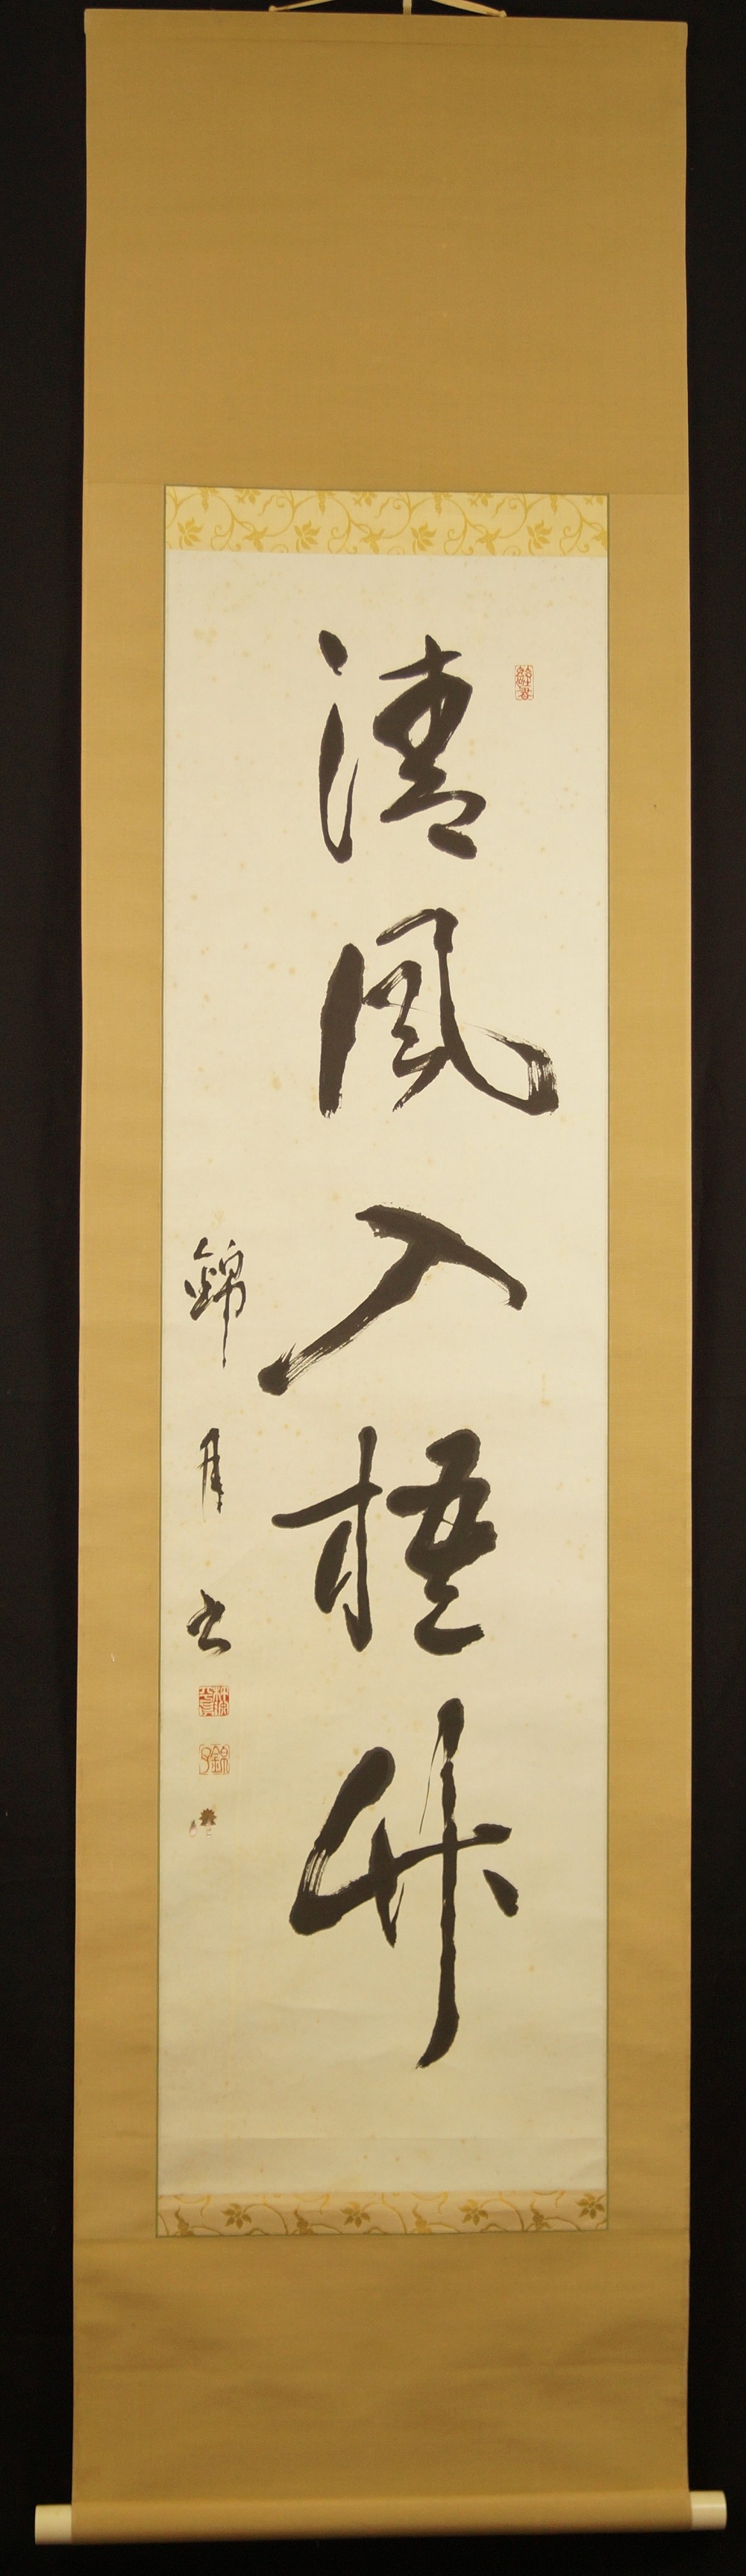 清風入梧竹
錦月書